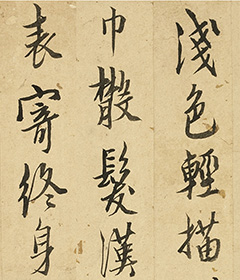 淺色輕描
巾散髮漢
表寄終身